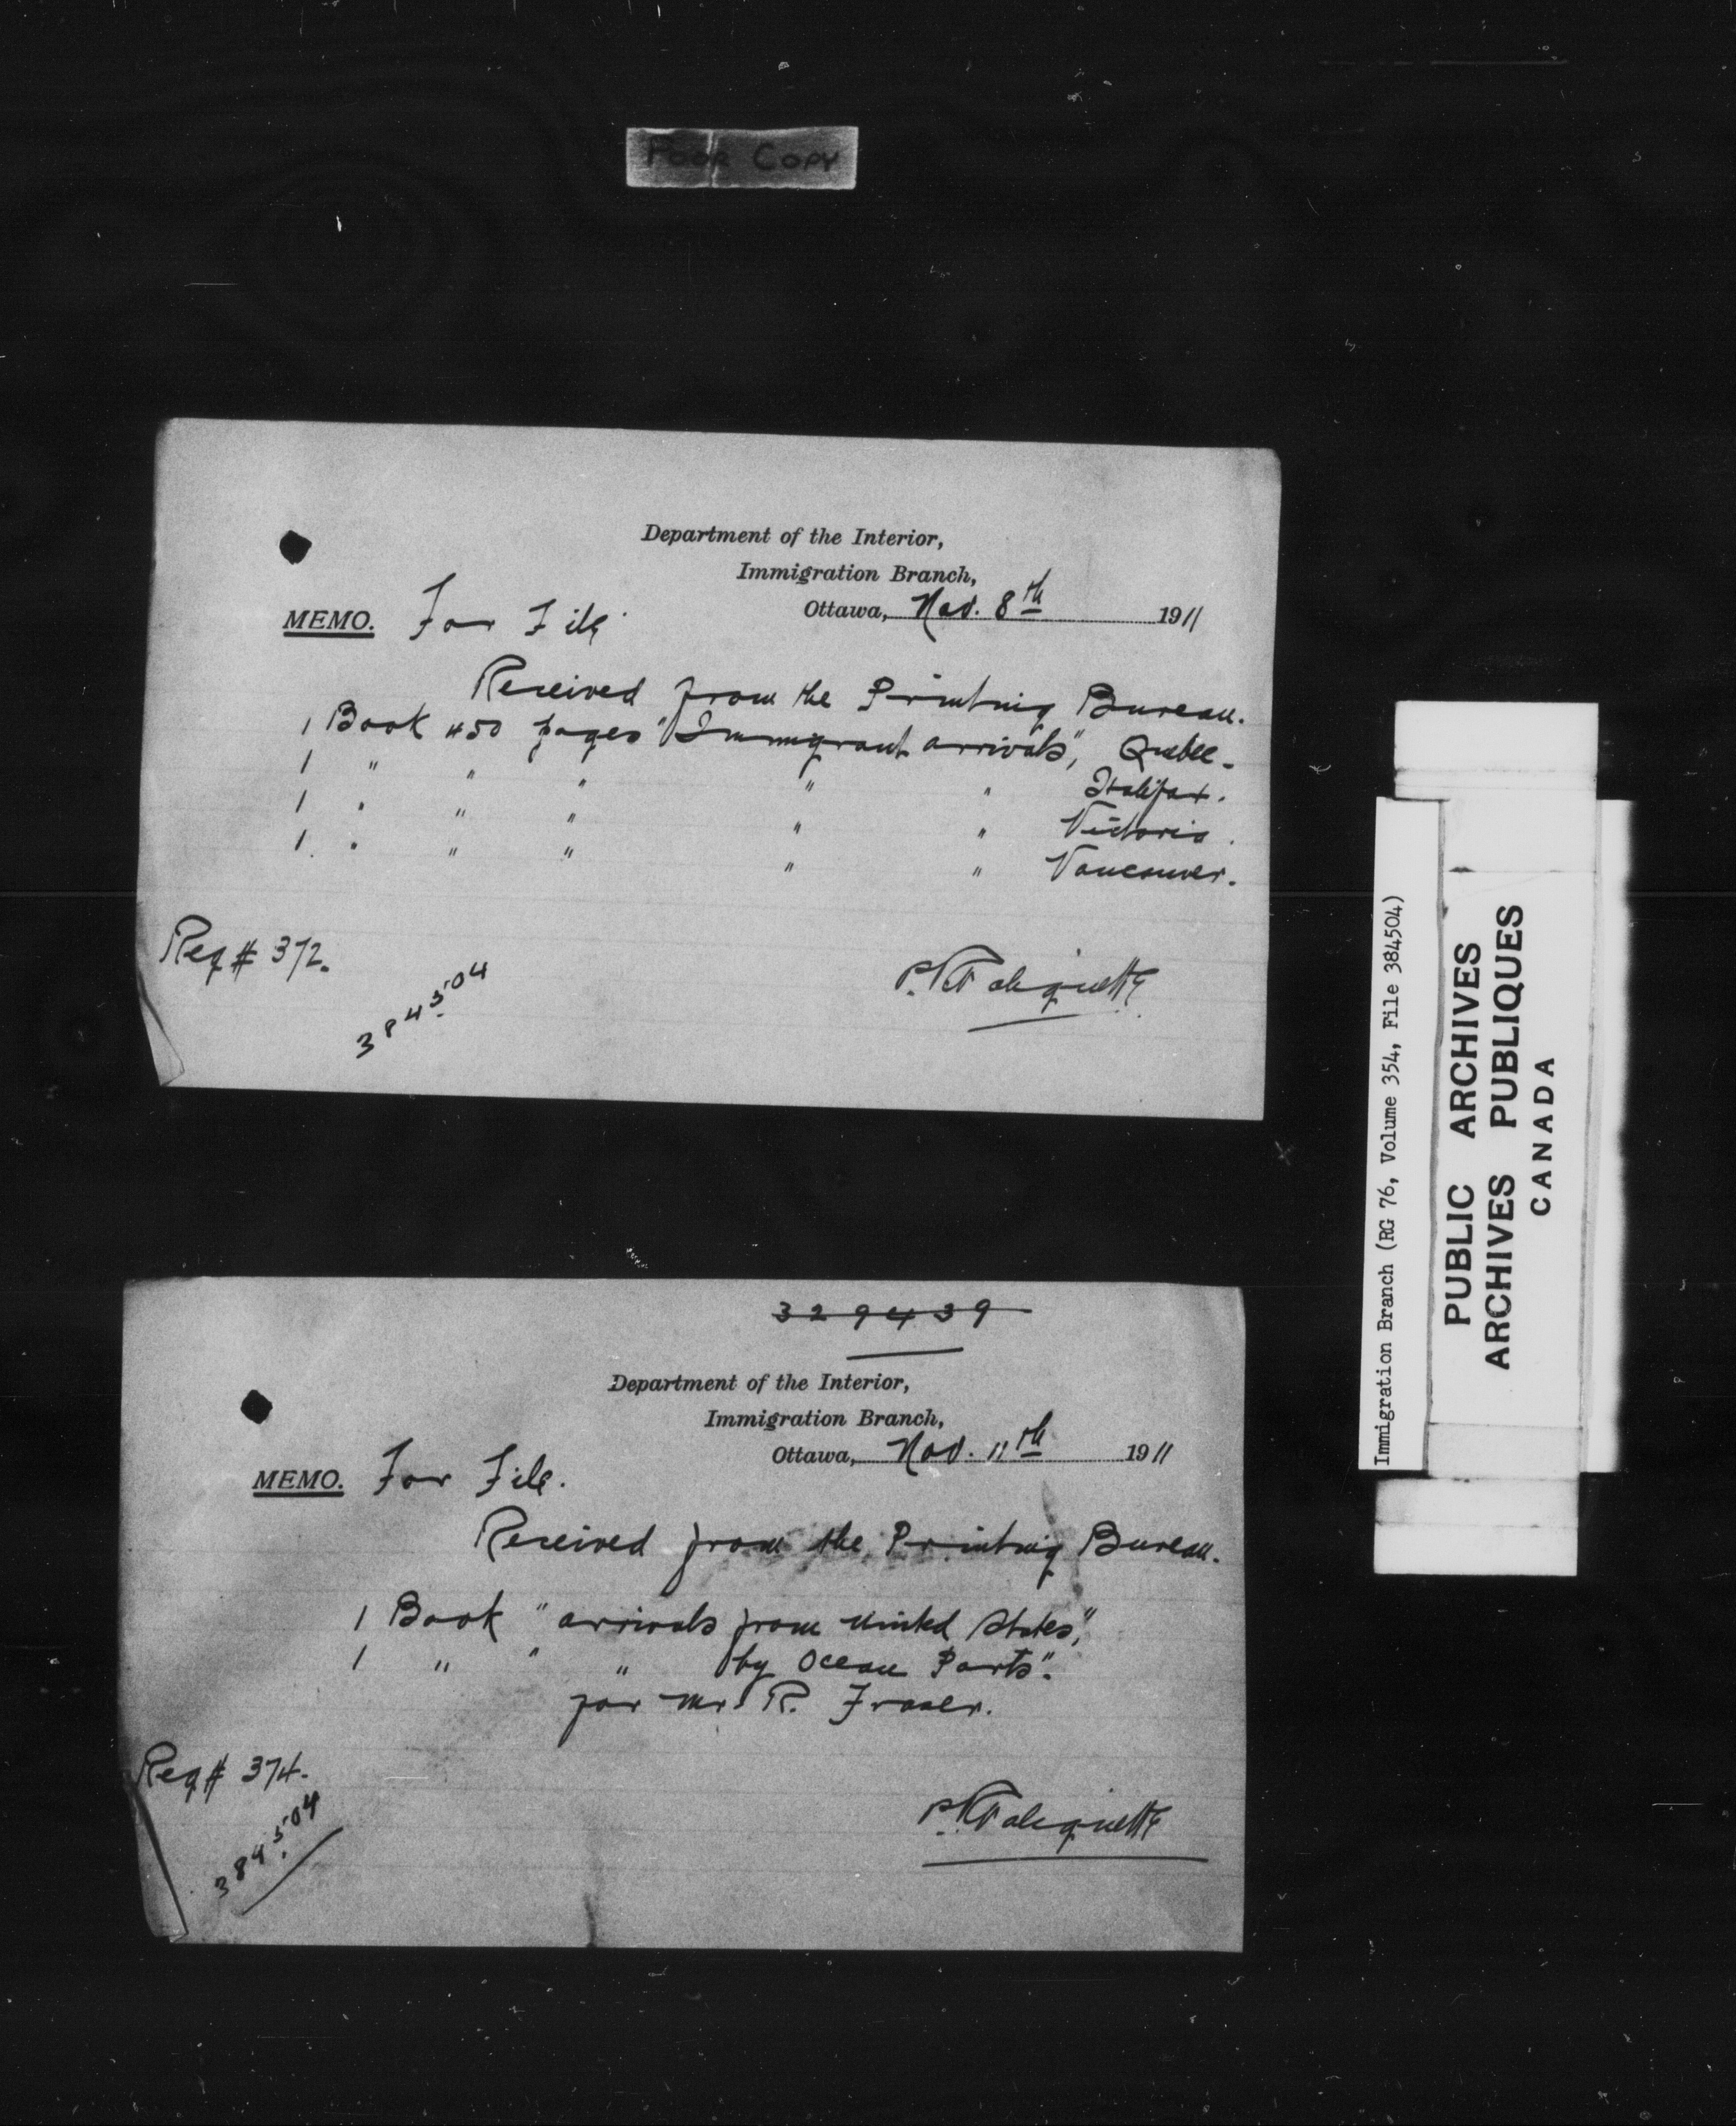 POOR COPY
Department of the Interior,
Immigration Branch,
Ottawa, Nov. 8th 1911
MEMO. For File.
Received from the Printing Bureau.
1 Book 450 pages "Immigrant arrivals", Quebec.
1 " " " " " Halifax.
1 " " " " " Victoria.
1. " " " " " Vancouver.
Req # 372.
384504
329439
Department of the Interior,
Immigration Branch,
Ottawa, Nov. 11th 1911
MEMO. For File.
Received from the Printing Bureau.
1 Book "arrivals from United States",
1 " " " by Ocean Ports".
for Mr R. Fraser.
Req # 374.
384504
Immigration Branch (RG 76, Volume 354, File 384504)
PUBLIC ARCHIVES
ARCHIVES PUBLIQUES
CANADA